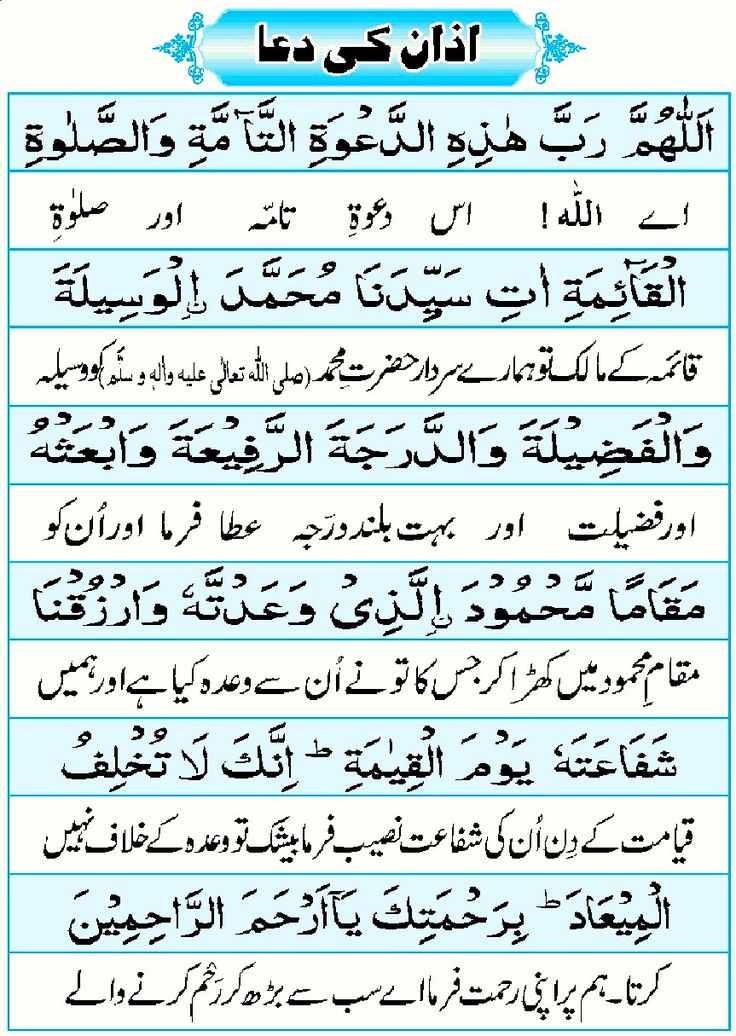 اذان کی دعا
اَللّٰهُمَّ رَبَّ هٰذِهِ الدَّعْوَةِ التَّآمَّةِ وَالصَّلٰوةِ
اے اللّٰه! اس دعوۃِ تامّہ اور صلوٰۃِ
الْقَآئِمَةِ اٰتِ سَيِّدَنَا مُحَمَّدَ ۨالْوَسِيْلَةَ
قائمہ کے مالک تو ہمارے سردار حضرتِ محمد (صلی اللّٰه تعالٰی علیه واٰلهٖ وسلّم) کو وسیلہ
وَالْفَضِيْلَةَ وَالدَّرَجَةَ الرَّفِيْعَةَ وَابْعَثْهُ
اور فضیلت اور بہت بلند درَجہ عطا فرما اور اُن کو
مَقَامًا مَّحْمُوْدَ ۨالَّذِيْ وَعَدْتَّهٗ وَارْزُقْنَا
مقامِ محمود میں کھڑا کر جس کا تو نے اُن سے وعدہ کیا ہے اور ہمیں
شَفَاعَتَهٗ يَوْمَ الْقِيٰمَةِ ؕ اِنَّكَ لَا تُخْلِفُ
قیامت کے دِن اُن کی شفاعت نصیب فرما بیشک تو وعدہ کے خلاف نہیں
الْمِيْعَادَ ؕ بِرَحْمَتِكَ يَآاَرْحَمَ الرَّاحِمِيْنَ
کرتا۔ ہم پر اپنی رحمت فرما اے سب سے بڑھ کر رَحْم کرنے والے